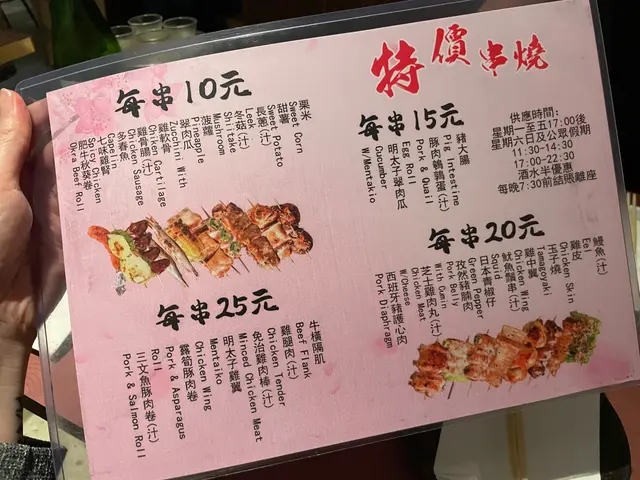 特價串燒
供應時間:
星期一至五17:00後
星期六日及公眾假期
11:30-14:30
17:00-22:30
酒水半優惠
每晚7:30前結賬離座
每串10元
粟米
Sweet Corn
甜薯
Sweet Potato
長蔥(汁)
Leek
冬菇(汁)
Shiitake
Mushroom
菠蘿
Pineapple
翠肉瓜
Zucchini With
雞軟骨
Chicken Cartilage
雞骨腸(汁)
Chicken Sausage
多春魚
Capelin
七味雞腎
Spicy Chicken
肥牛秋葵卷
Okra Beef Roll
每串15元
豬大腸
Pig Intestine
豚肉鵪鶉蛋(汁)
Pork & Quail
Egg Roll
明太子翠肉瓜
Cucumber
W/Mentaiko
每串20元
鰻魚(汁)
Eel
雞皮
Chicken Skin
玉子燒
Tamagoyaki
雞中翼
Chicken Wing
魷魚鬚串(汁)
Squid
日本青椒仔
Green Pepper
孜然豬腩肉
Pork Belly
With Cumin
芝士雞肉丸(汁)
Chicken Meat
W/Cheese
西班牙豬護心肉
Pork Diaphragm
每串25元
牛橫隔肌
Beef Flank
雞腿肉(汁)
Chicken Tender
免治雞肉棒(汁)
Minced Chicken Meat
明太子雞翼
Mentaiko
Chicken Wing
露筍豚肉卷
Pork & Asparagus
Roll
三文魚豚肉卷(汁)
Pork & Salmon Roll